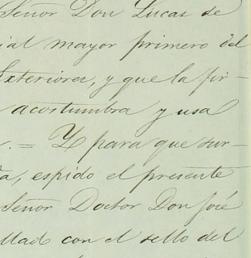 Señor Don Lucas de
ial mayor primero del
Exteriores, y que la fir-
acostumbra y usa
. = Y para que sur-
ta, espido el presente
Señor Doctor Don José
ltad con el sello del